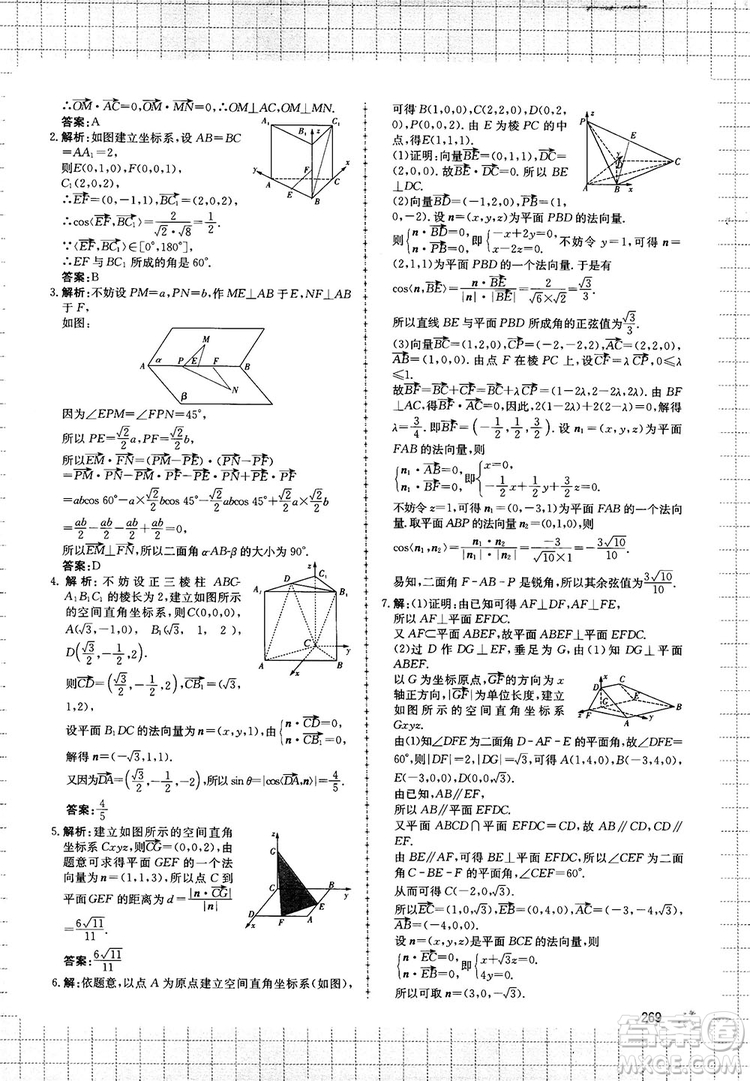 ∴OM·AC=0,OM·MN=0,∴OM⊥AC,OM⊥MN.
答案:A
2.解析:如图建立坐标系,设AB=BC
=AA₁=2,
则E(0,1,0),F(0,0,1),
C₁(2,0,2),
∴EF=(0,-1,1),BC₁=(2,0,2),
∴cos⟨EF,BC₁⟩=2/(√2·√8)=1/2.
∵⟨EF,BC₁⟩∈[0°,180°],
∴EF与BC₁所成的角是60°.
答案:B
3.解析:不妨设PM=a,PN=b,作ME⊥AB于E,NF⊥AB
于F,
如图:
因为∠EPM=∠FPN=45°,
所以PE=√2/2a,PF=√2/2b,
所以EM·FN=(PM-PE)·(PN-PF)
=PM·PN-PM·PF-PE·PN+PE·PF
=abcos 60°-a×√2/2bcos 45°-√2/2abcos 45°+√2/2a×√2/2b
=ab/2-ab/2-ab/2+ab/2=0.
所以EM⊥FN,所以二面角α-AB-β的大小为90°.
答案:D
4.解析:不妨设正三棱柱ABC-
A₁B₁C₁的棱长为2,建立如图所示
的空间直角坐标系,则C(0,0,0),
A(√3,-1,0),B₁(√3,1,2),
D(√3/2,-1/2,2)
则CD=(√3/2,-1/2,2),CB₁=(√3,
1,2),
设平面B₁DC的法向量为n=(x,y,1),由{n·CD=0,
n·CB₁=0,
解得n=(-√3,1,1).
又因为DA=(√3/2,-1/2,-2),所以sin θ=|cos⟨DA,n⟩|=4/5.
答案:4/5
5.解析:建立如图所示的空间直角
坐标系Cxyz,则CG=(0,0,2),由
题意可求得平面GEF的一个法
向量为n=(1,1,3),所以点C到
平面GEF的距离为d=|n·CG|/|n|
=6√11/11.
答案:6√11/11
6.解:依题意,以点A为原点建立空间直角坐标系(如图),
可得B(1,0,0),C(2,2,0),D(0,
2,0),P(0,0,2).由E为棱PC的中
点,得E(1,1,1).
(1)证明:向量BE=(0,1,1),DC=
(2,0,0).故BE·DC=0.所以BE
⊥DC.
(2)向量BD=(-1,2,0),PB=(1,
0,-2).设n=(x,y,z)为平面PBD的法向量,
则{n·BD=0,n·PB=0,即{-x+2y=0,x-2z=0.不妨令y=1,可得n=
(2,1,1)为平面PBD的一个法向量.于是有
cos⟨n,BE⟩=n·BE/(|n|·|BE|)=2/(√6×√2)=√3/3.
所以直线BE与平面PBD所成角的正弦值为√3/3.
(3)向量BC=(1,2,0),CP=(-2,-2,2),AC=(2,2,0),
AB=(1,0,0).由点F在棱PC上,设CF=λCP,0≤λ
≤1.
故BF=BC+CF=BC+λCP=(1-2λ,2-2λ,2λ).由BF
⊥AC,得BF·AC=0,因此,2(1-2λ)+2(2-2λ)=0,解得
λ=3/4.即BF=(-1/2,1/2,3/2).设n₁=(x,y,z)为平面
FAB的法向量,则
{n₁·AB=0,n₁·BF=0,即{x=0,-1/2x+1/2y+3/2z=0.
不妨令z=1,可得n₁=(0,-3,1)为平面FAB的一个法向
量.取平面ABP的法向量n₂=(0,1,0),则
cos⟨n₁,n₂⟩=n₁·n₂/(|n₁|·|n₂|)=-3/(√10×1)=-3√10/10.
易知,二面角F-AB-P是锐角,所以其余弦值为3√10/10.
7.解:(1)证明:由已知可得AF⊥DF,AF⊥FE,
所以AF⊥平面EFDC.
又AF⊂平面ABEF,故平面ABEF⊥平面EFDC.
(2)过D作DG⊥EF,垂足为G,由(1)知DG⊥平面
ABEF.
以G为坐标原点,GF的方向为x
轴正方向,|GF|为单位长度,建立
如图所示的空间直角坐标系
Gxyz.
由(1)知∠DFE为二面角D-AF-E的平面角,故∠DFE=
60°,则|DF|=2,|DG|=√3,可得A(1,4,0),B(-3,4,0),
E(-3,0,0),D(0,0,√3).
由已知,AB∥EF,
所以AB∥平面EFDC.
又平面ABCD∩平面EFDC=CD,故AB∥CD,CD∥EF.
由BE∥AF,可得BE⊥平面EFDC,所以∠CEF为二面
角C-BE-F的平面角,∠CEF=60°.
从而可得C(-2,0,√3).
所以EC=(1,0,√3),EB=(0,4,0),AC=(-3,-4,√3),
AB=(-4,0,0).
设n=(x,y,z)是平面BCE的法向量,则
{n·EC=0,n·EB=0,即{x+√3z=0,4y=0.
所以可取n=(3,0,-√3).
269
答案圈
MXQE.COM